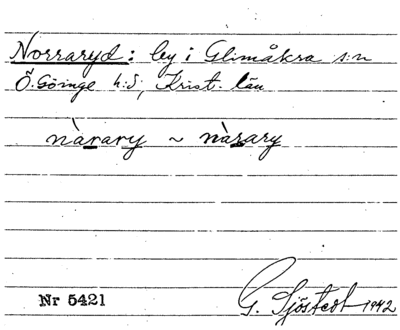 Norraryd: by i Glimåkra s:n
Ö. Göinge h:d, Krist. län
nàrary ~ nàrary
Nr 5421
G. Sjöstedt 1942